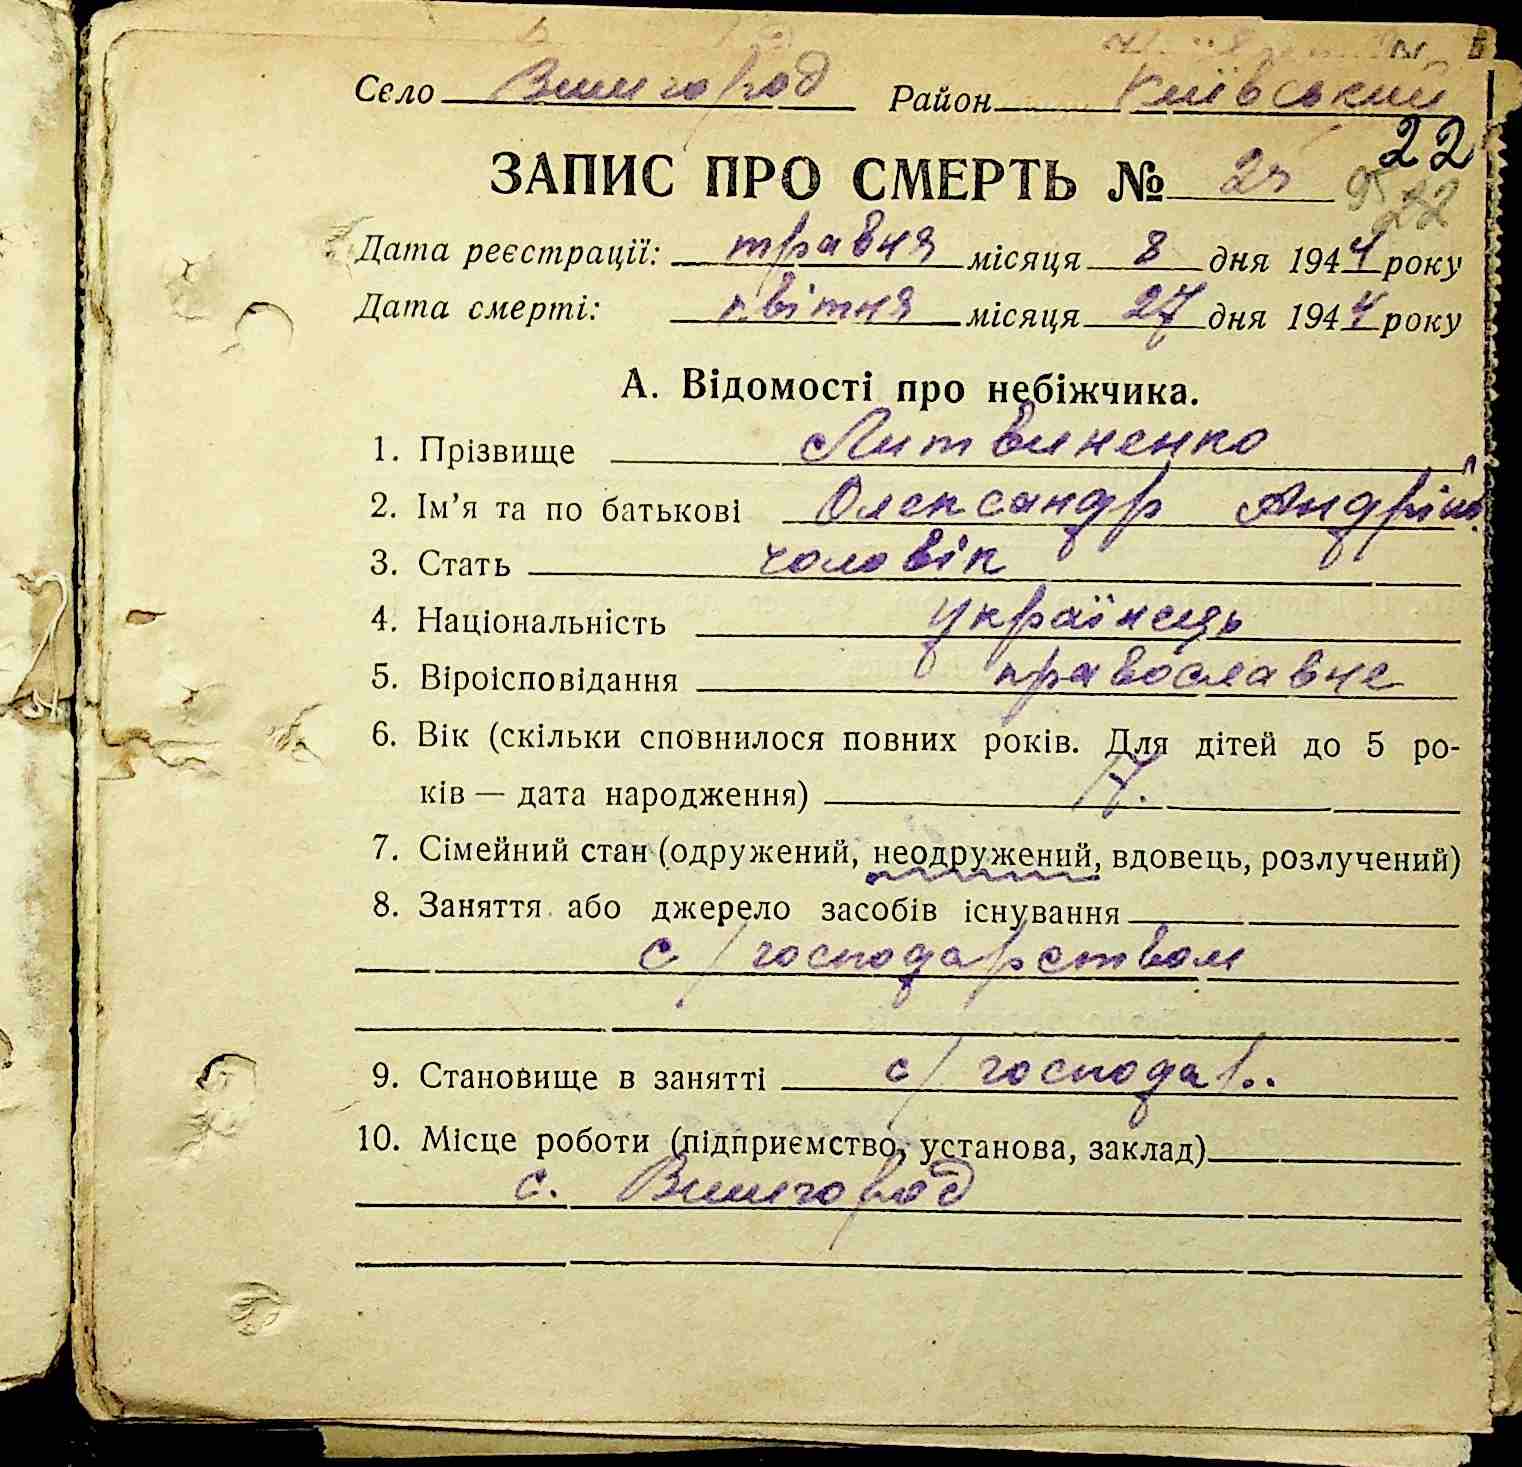 Село Вишгород Район Київський
22
ЗАПИС ПРО СМЕРТЬ № 25
22
Дата реєстрації: травня місяця 8 дня 1944 року
Дата смерті: квітня місяця 27 дня 1944 року
А. Відомості про небіжчика.
1. Прізвище Литвиненко
2. Ім'я та по батькові Олександр Андрійов.
3. Стать чоловік
4. Національність українець
5. Віроісповідання православне
6. Вік (скільки сповнилося повних років. Для дітей до 5 ро-
ків — дата народження) 17.
7. Сімейний стан (одружений, неодружений, вдовець, розлучений)
8. Заняття або джерело засобів існування
с/господарством
9. Становище в занятті с/господар..
10. Місце роботи (підприємство, установа, заклад)
с. Вишгород